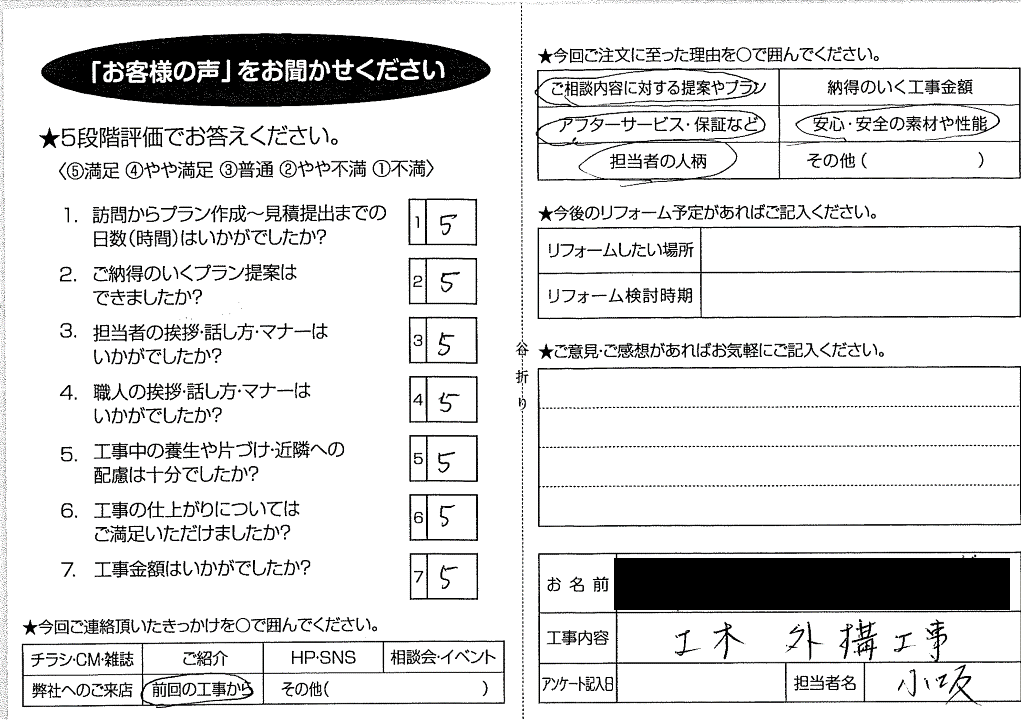 「お客様の声」をお聞かせください
★5段階評価でお答えください。
〈⑤満足 ④やや満足 ③普通 ②やや不満 ①不満〉
1. 訪問からプラン作成〜見積提出までの
日数(時間)はいかがでしたか?
1 5
2. ご納得のいくプラン提案は
できましたか?
2 5
3. 担当者の挨拶・話し方・マナーは
いかがでしたか?
3 5
4. 職人の挨拶・話し方・マナーは
いかがでしたか?
4 5
5. 工事中の養生や片づけ・近隣への
配慮は十分でしたか?
5 5
6. 工事の仕上がりについては
ご満足いただけましたか?
6 5
7. 工事金額はいかがでしたか?
7 5
★今回ご連絡頂いたきっかけを○で囲んでください。
チラシ・CM・雑誌 ご紹介 HP・SNS 相談会・イベント
弊社へのご来店 前回の工事から その他( )
谷折り
★今回ご注文に至った理由を○で囲んでください。
ご相談内容に対する提案やプラン 納得のいく工事金額
アフターサービス・保証など 安心・安全の素材や性能
担当者の人柄 その他( )
★今後のリフォーム予定があればご記入ください。
リフォームしたい場所
リフォーム検討時期
★ご意見・ご感想があればお気軽にご記入ください。
お名前
工事内容 土木 外構工事
アンケート記入日 担当者名 小坂